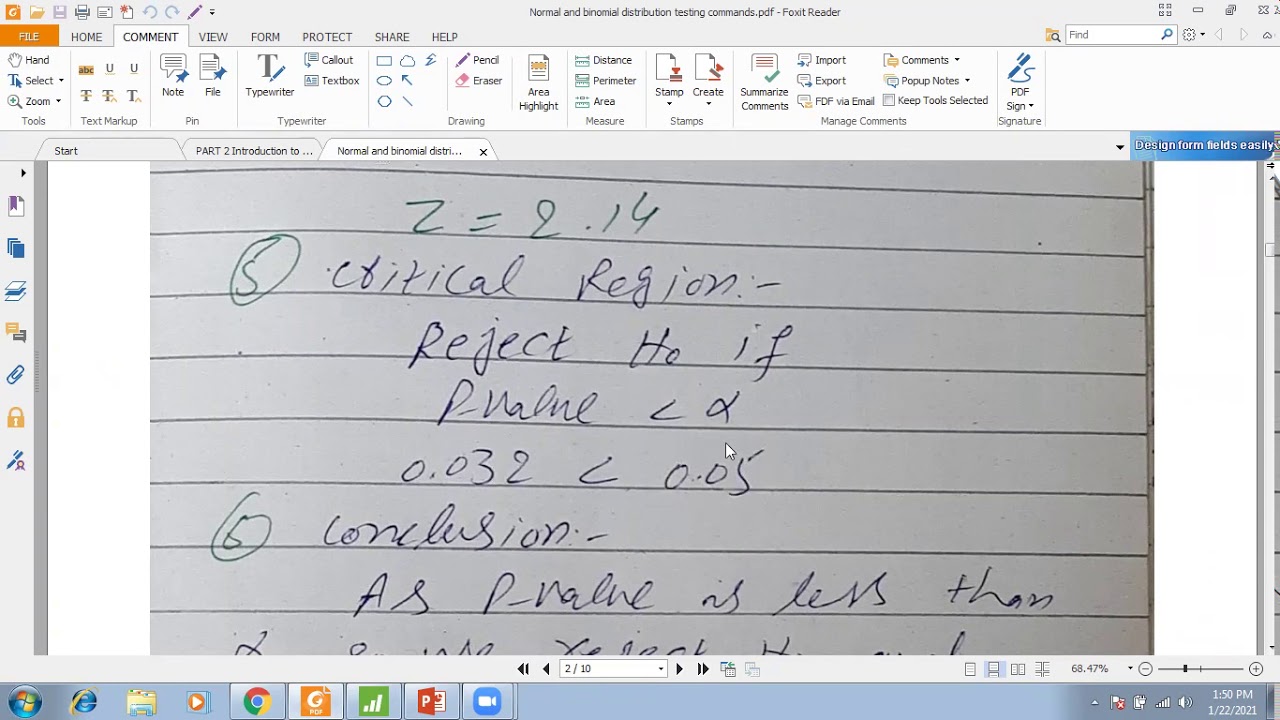 Normal and binomial distribution testing commands.pdf - Foxit Reader
FILE HOME COMMENT VIEW FORM PROTECT SHARE HELP
Find
Hand
Select
Zoom
Tools
Text Markup
Note
File
Pin
Typewriter
Callout
Textbox
Typewriter
Pencil
Eraser
Drawing
Area
Highlight
Distance
Perimeter
Area
Measure
Stamp
Create
Stamps
Summarize
Comments
Import
Export
FDF via Email
Comments
Popup Notes
Keep Tools Selected
Manage Comments
PDF
Sign
Signature
Start
PART 2 Introduction to ...
Normal and binomial distri...
Design form fields easily
Z = 2.14
5 Critical Region:-
Reject H0 if
P-value < α
0.032 < 0.05
6 Conclusion:-
As P-value is less than
2 / 10
68.47%
1:50 PM
1/22/2021